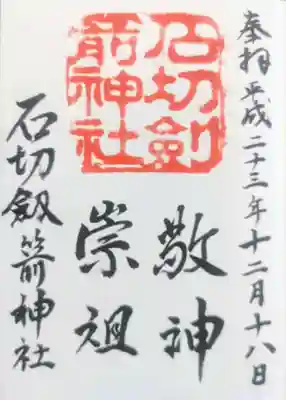 奉拝 平成二十三年十二月十八日
石切劔
箭神社
敬神
崇祖
石切劔箭神社